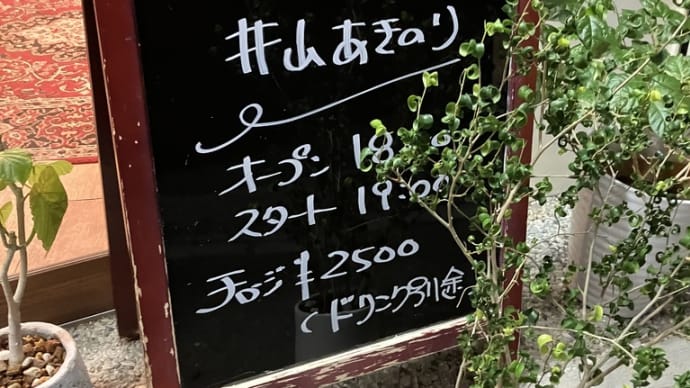 井山あきのり
オープン 18:00
スタート 19:00
チャージ ¥2500
(ドリンク別途)